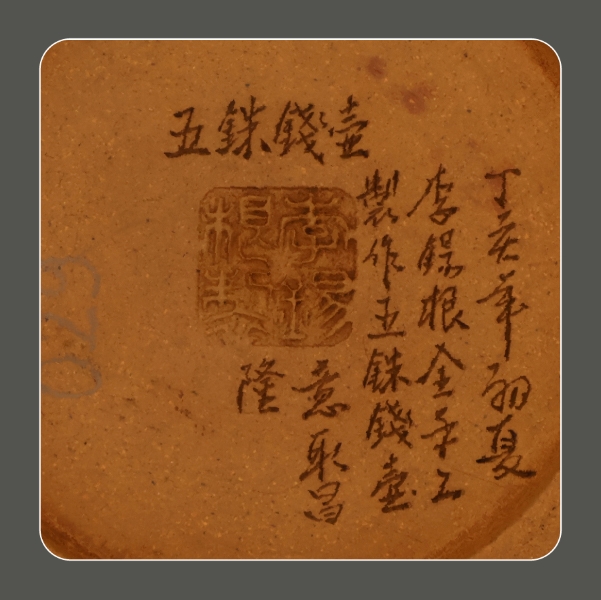 五銖錢壺
丁亥年初夏
李錫根全手工
製作五銖錢壺
意取昌
隆